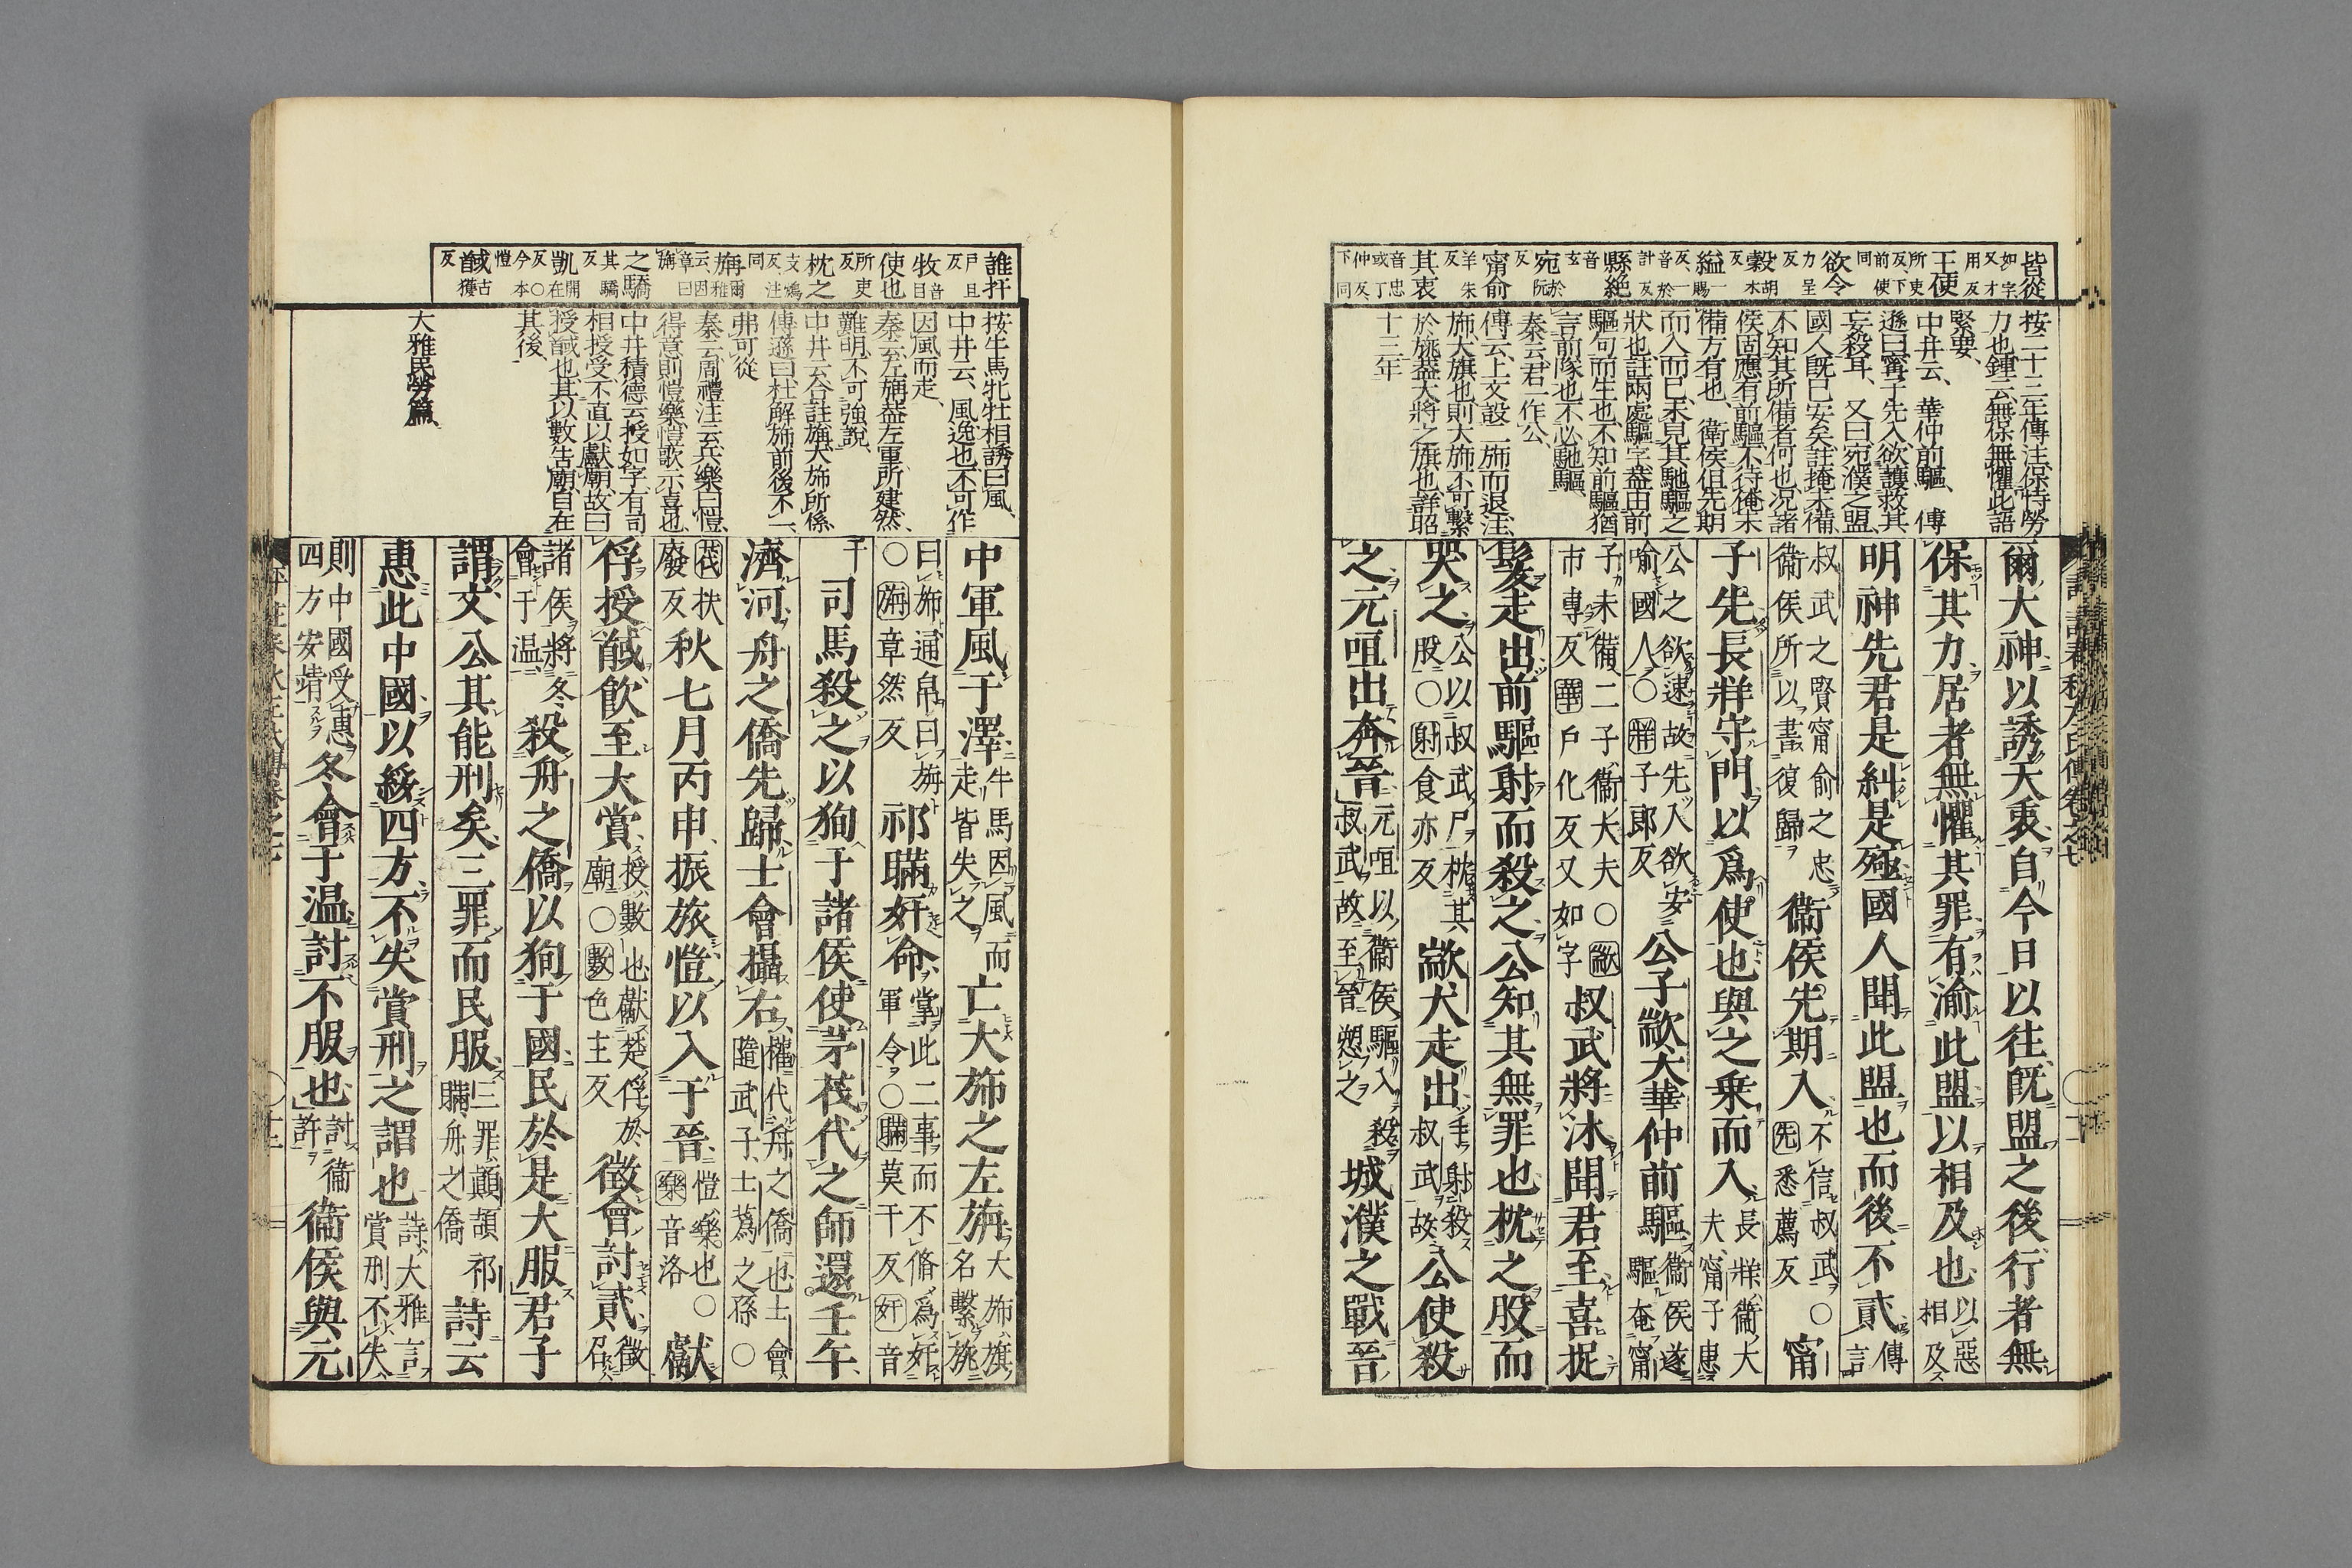 皆從
如字
又才
用反
王使
所吏
反下
前使
同
欲令
力呈
反
穀
胡木
反
縊
一賜
反一
音於
計反
縣絕
音玄
宛
於阮
反
甯俞
羊朱
反
其衷
音忠
或丁
仲反
下同
按二十三年傳注保恃勞
力也鍾云無保無懼此語
緊要
中井云華仲前驅傳
遜曰甯子先入欲護救其
妄殺耳又曰宛濮之盟
國人既已安矣註掩未備
不知其所備者何也況諸
侯固應有前驅不待掩未
備方有也衛侯但先期
而入而已未見其馳驅之
狀也註兩處驅字蓋由前
驅句而生也不知前驅猶
言前隊也不必馳驅
秦云君一作公
傳云上文設二旆而退注
旆大旗也則大旆不可繫
於旐蓋大將之旗也詳昭
十三年
爾大神以誘天衷自今日以往既盟之後行者無
保其力居者無懼其罪有渝此盟以相及也
以惡
相及
明神先君是糾是殛國人聞此盟也而後不貳
傳言
叔武之賢甯俞之忠
衞侯所以書復歸
衞侯先期入
不信叔武○
先悉薦反
甯
子先長牂守門以爲使也與之乗而入
長牂衞大
夫甯子患
公之欲速故先入欲安
喻國人○牂子郎反
公子歂犬華仲前驅
衞侯遂
驅奄甯
子未備二子衞大夫○歂
市專反華戶化反又如字
叔武將沐聞君至喜捉
髮走出前驅射而殺之公知其無罪也枕之股而
哭之
公以叔武尸枕其
股○射食亦反
歂犬走出
手射殺
叔武故
公使殺
之元咺出奔晉
元咺以衞侯驅入殺
叔武故至晉愬之
城濮之戰晉
誰扞
戶旦
反
牧
音目
使也
所吏
反
枕之
支鴆
反注
同
旃
爾雅
云因
章曰
旃
之驕
其驕
反
凱
開在
反○
今本
愷
馘
古獲
反
首
按牛馬牝牡相誘曰風
中井云風逸也不可作
因風而走
秦云左旃蓋左軍所建然
難明不可強說
中井云合註旃大旆所係
傳遜曰杜解旆前後不一
弗可從
秦云周禮注云兵樂曰愷
得意則愷樂愷歌示喜也
中井積德云授如字有司
相授受不直以獻廟故曰
授馘也其以數告廟自在
其後
大雅民勞篇
中軍風于澤
牛馬因風而
走皆失之
亡大旆之左旃
大旆旗
名繫旐
曰旆通帛曰旃
○旃章然反
祁瞞奸命
掌此二事而不脩爲奸
軍令○瞞莫干反奸音
干
司馬殺之以狗于諸侯使茅茷代之師還壬午
濟河舟之僑先歸士會攝右
權代舟之僑也士會
隨武子士蒍之孫○
茷扶
廢反
秋七月丙申振旅愷以入于晉
愷樂也○
樂音洛
獻
俘授馘飲至大賞
授數也獻楚俘於
廟○數色主反
徵會討貳
徵
召
諸侯將冬
會于温
殺舟之僑以狗于國民於是大服君子
謂文公其能刑矣三罪而民服
三罪顚頡祁
瞞舟之僑
詩云
惠此中國以綏四方不失賞刑之謂也
詩大雅言
賞刑不失
則中國受惠
四方安靖
冬會于温討不服也
討衞
許
衞侯與元